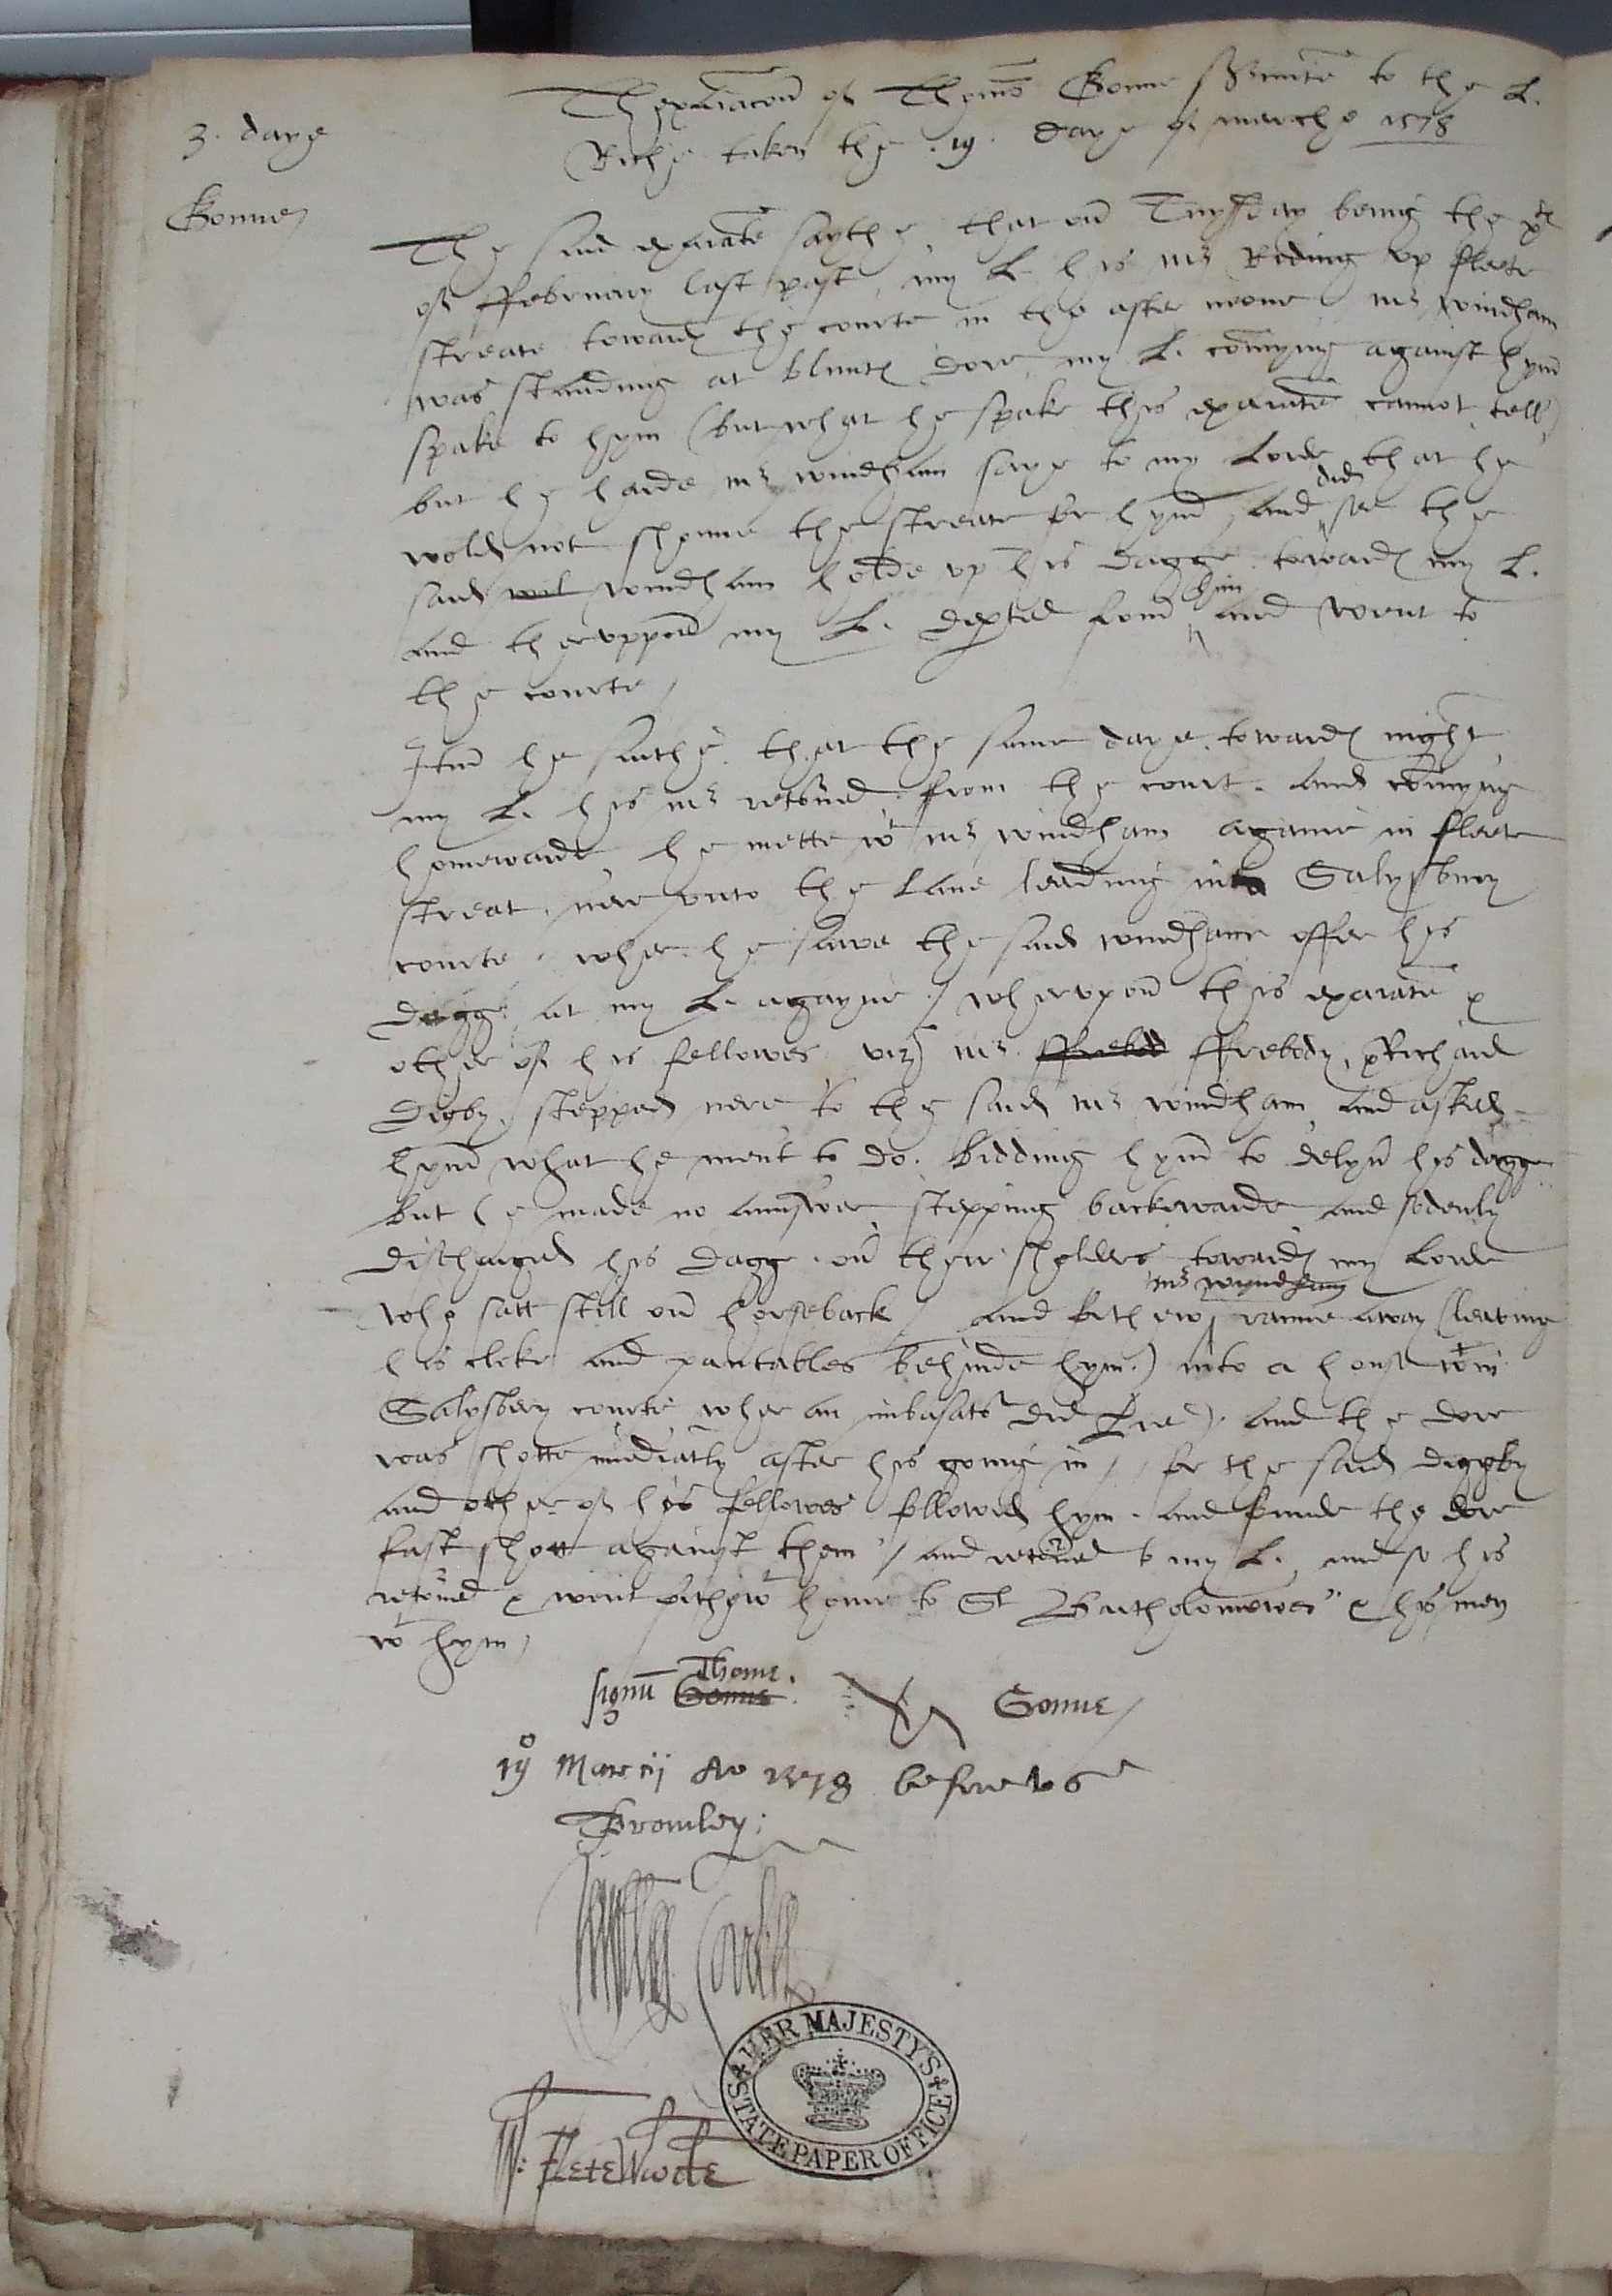 Thexaiacon of Thom̃s Gonne s̃vnte to the L.
3. daye
Riche taken the .19. daye of marche 1578
Gonne
The said exaiate saythe, that on Tuysday being the xth
of ffebruary last past, my L. his mr Riding vp fleete
streate towards the courte in the after noone mr windham
was standing at blunts dore, my L. comyng against hym
spake to hym (but what he spake this exaiate cannot tell)
but he harde mr windham saye to my Lorde that he
wold not shonne the streate for hym, and did see the
said wil windham holde vp his dagge towards my L.
and therevppon my L. depted from him and went to
the courte /
Itm he saithe that the same daye towards night
my L. his mr retorned from the court. and comyng
homewarde he mette wt mr windham againe in fleete
streat. nere vnto the lane leading into Salysbury
courte. wher he sawe the said windham offer his
dagge at my L. agayne / whervpon this exaiate &
other of his fellowes viz mr ffrebod ffrebody, & Richard
Digby, stepped nere to the said mr windham and asked
hym what he ment to do. bidding hym to delyũ his dagge
but he made no aunswer stepping backewarde and sodenly
discharged his dagg. on their sholders towards my Lorde
who satt still on horseback / and forthewt mr wyndham ranne away (leaving
his cloke and pantables behinde hym.) into a house wtin
Salysbery courte wher an imbasator did lye). and the dore
was shotte imediatly after his going in / for the said diggby
and other of his fellowes followed hym. and founde the dore
fast shott against them / and retorned to my L. and so his
retorned & went forthewt home to St Bartholomewes & his men
wt hym /
signũ Thome Gonne. Gonne /
19o Marcij Ao 1578 before vs
Bromley:
W: Fletewoode
HER MAJESTY'S STATE PAPER OFFICE